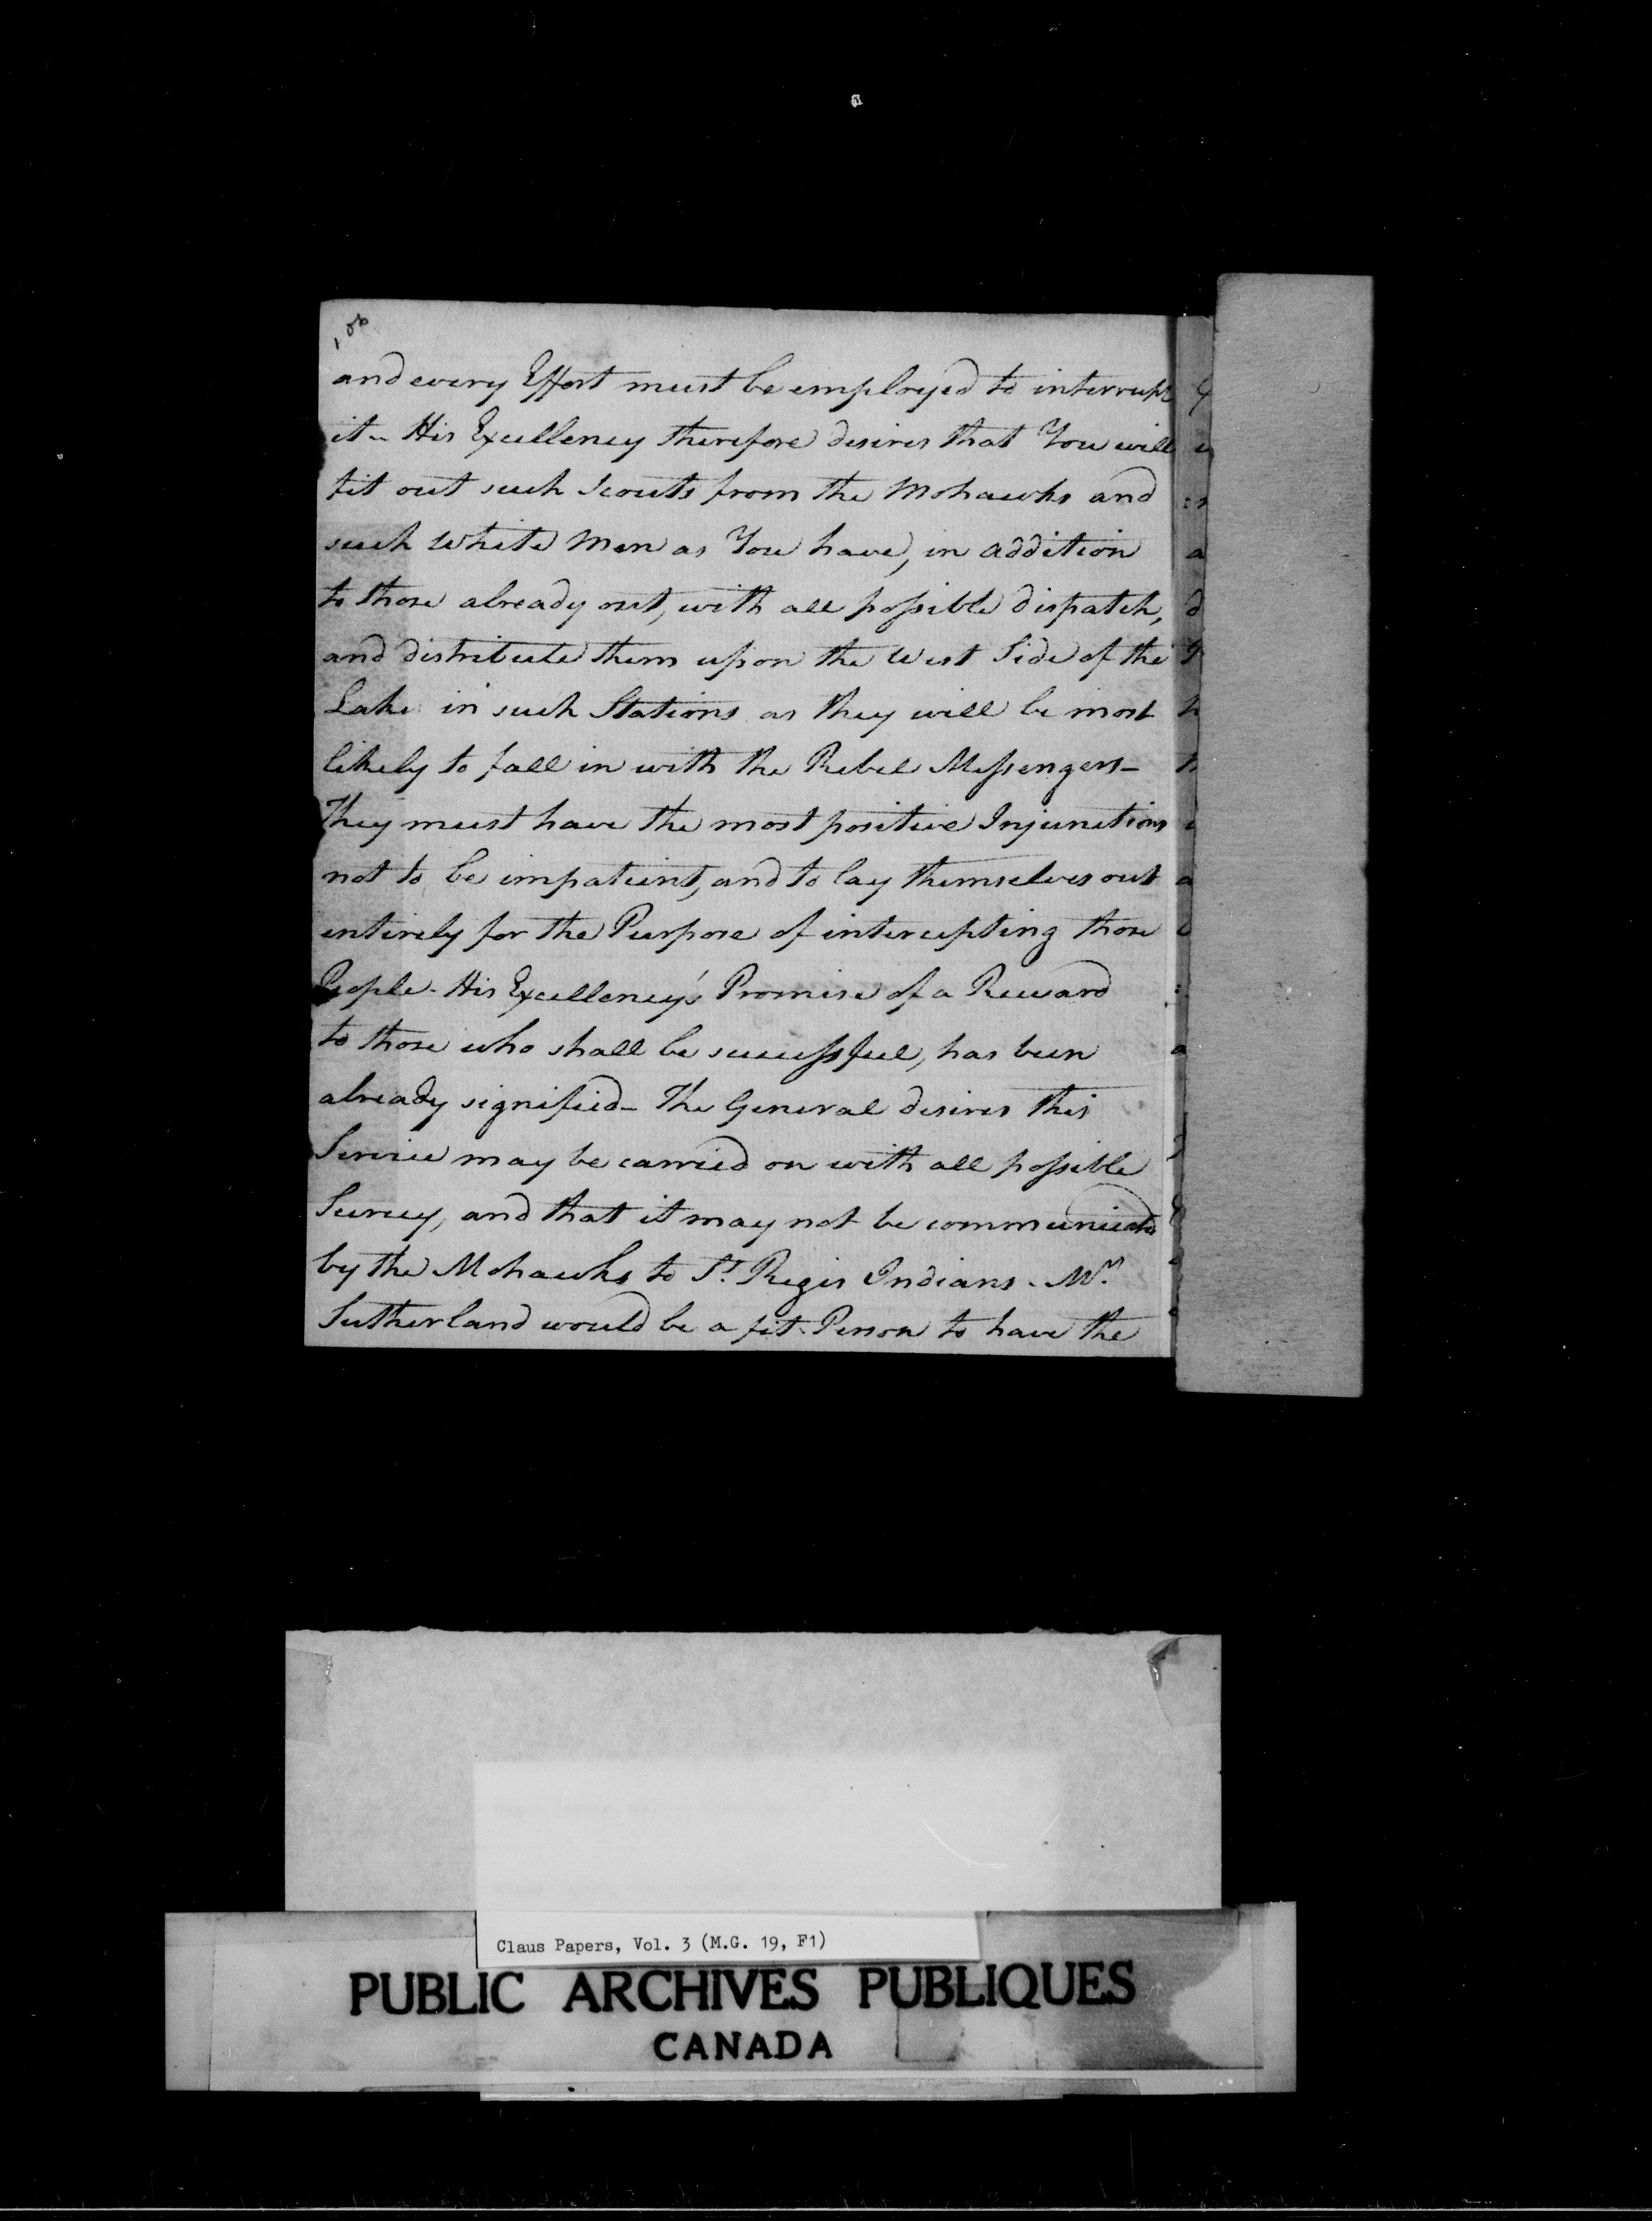 and every Effort must be employed to interrupt
it - His Excellency therefore desires that You will
fit out such Scouts from the Mohawks and
such White Men as You have, in addition
to those already out, with all possible dispatch,
and distribute them upon the West Side of the
Lake in such Stations as they will be most
likely to fall in with the Rebel Messengers -
They must have the most positive Injunctions
not to be impatient, and to lay themselves out
entirely for the Purpose of intercepting those
People - His Excellency's Promise of a Reward
to those who shall be successful, has been
already signified - The General desires this
Service may be carried on with all possible
Secrecy, and that it may not be communicated
by the Mohawks to St. Regis Indians - Mr.
Sutherland would be a fit Person to have the
Claus Papers, Vol. 3 (M.G. 19, F1)
PUBLIC ARCHIVES PUBLIQUES
CANADA